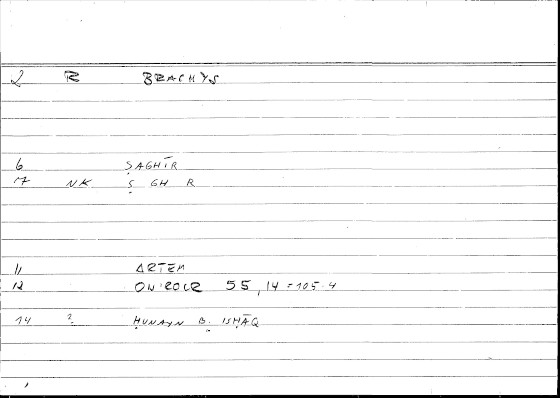 2 R BRACHYS
6 ṢAGHĪR
7 NK Ṣ GH R
11 ARTEM
12 ONIROCR 55,14=105.4
14 ? ḤUNAYN B. ISḤĀQ